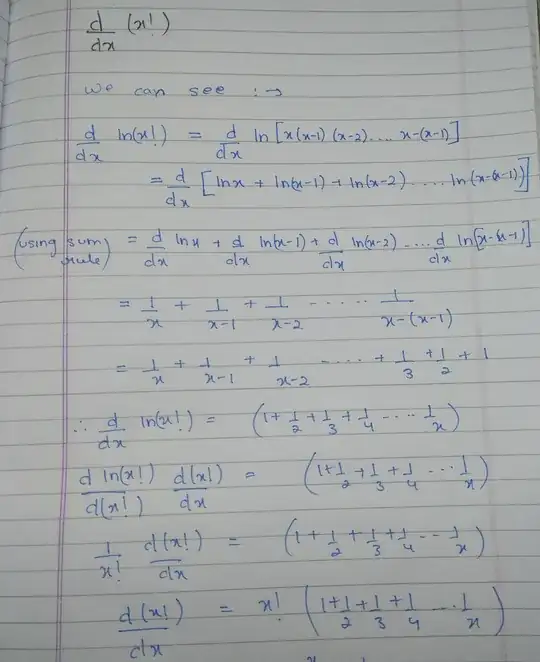 d/dx (x!)
we can see :→
d/dx ln(x!) = d/dx ln[x(x-1)(x-2).... x-(x-1)]
= d/dx [lnx + ln(x-1) + ln(x-2) ..... ln(x-(x-1))]
(using sum rule) = d/dx lnx + d/dx ln(x-1) + d/dx ln(x-2) - ... d/dx ln[x-(x-1)]
= 1/x + 1/x-1 + 1/x-2 ----.. 1/x-(x-1)
= 1/x + 1/x-1 + 1/x-2 ----.. + 1/3 + 1/2 + 1
∴ d/dx ln(x!) = (1 + 1/2 + 1/3 + 1/4 ---- 1/x)
d ln(x!)/d(x!) d(x!)/dx = (1 + 1/2 + 1/3 + 1/4 --- 1/x)
1/x! d(x!)/dx = (1 + 1/2 + 1/3 + 1/4 -- 1/x)
d(x!)/dx = x! (1 + 1/2 + 1/3 + 1/4 --- 1/x)